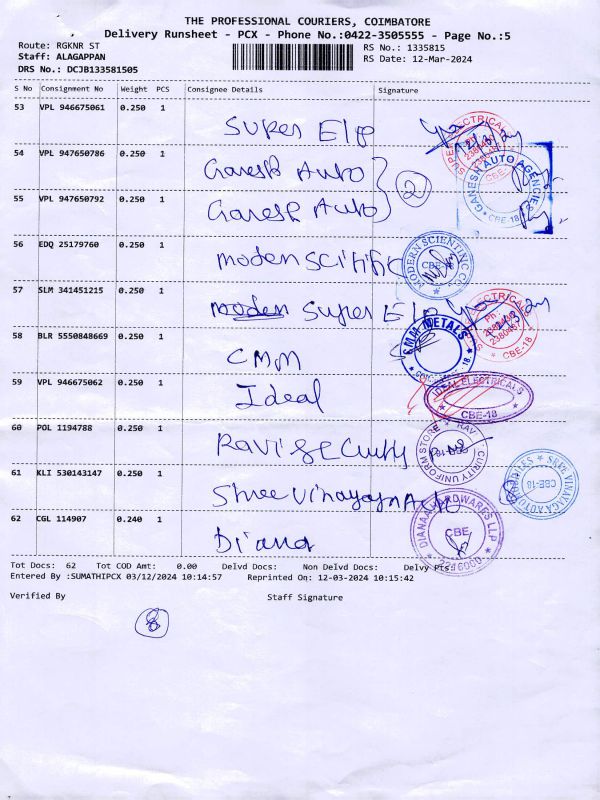 THE PROFESSIONAL COURIERS, COIMBATORE
Delivery Runsheet - PCX - Phone No.:0422-3505555 - Page No.:5
Route: RGKNR ST
RS No.: 1335815
Staff: ALAGAPPAN
RS Date: 12-Mar-2024
DRS No.: DCJB133581505
S No Consignment No Weight PCS Consignee Details Signature
53 VPL 946675061 0.250 1
Super Elp
54 VPL 947650786 0.250 1
Ganesh Auto
55 VPL 947650792 0.250 1
Ganesh Auto
2
GANESH AUTO AGENCIES CBE-18
56 EDQ 25179760 0.250 1
moden Scitific
MODERN SCIENTIFIC CO. CBE-18
57 SLM 341451215 0.250 1
moden Super Elp
58 BLR 5550848669 0.250 1
CMM
CMM METALS
59 VPL 946675062 0.250 1
Ideal
IDEAL ELECTRICALS CBE-18
60 POL 1194788 0.250 1
Ravi Security
61 KLI 530143147 0.250 1
Shree Vinayaga Auto
62 CGL 114907 0.240 1
Diana
DIANAA HARDWARES LLP CBE
Tot Docs: 62 Tot COD Amt: 0.00 Delvd Docs: Non Delvd Docs: Delvy Pts:
Entered By :SUMATHIPCX 03/12/2024 10:14:57 Reprinted On: 12-03-2024 10:15:42
Verified By Staff Signature
8